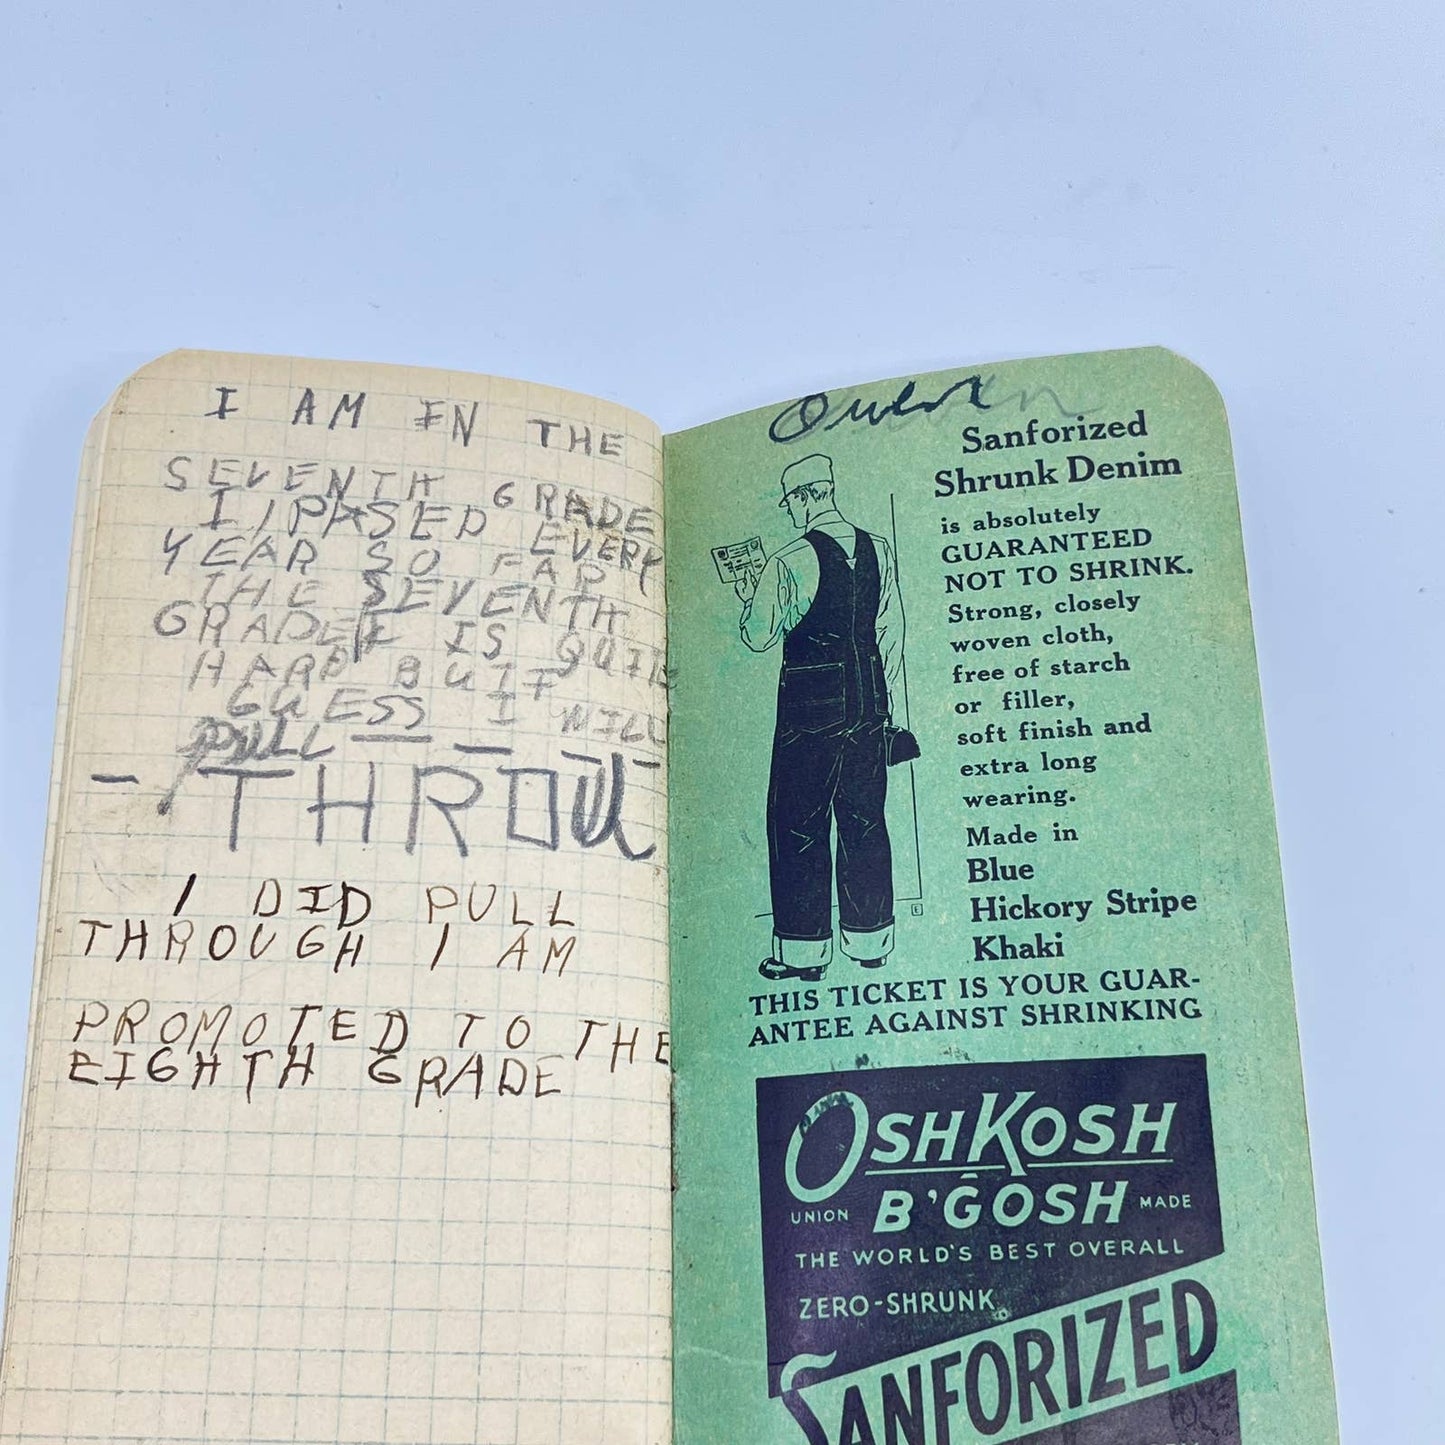 I AM IN THE
SEVENTH GRADE
I PASED EVERY
YEAR SO FAR
THE SEVENTH
GRADE IS QUITE
HARD BUT I
GUESS I WILL
PULL
- THROU
I DID PULL
THROUGH I AM
PROMOTED TO THE
EIGHTH GRADE
Owen
Sanforized
Shrunk Denim
is absolutely
GUARANTEED
NOT TO SHRINK.
Strong, closely
woven cloth,
free of starch
or filler,
soft finish and
extra long
wearing.
Made in
Blue
Hickory Stripe
Khaki
THIS TICKET IS YOUR GUAR-
ANTEE AGAINST SHRINKING
OSHKOSH
UNION B'GOSH MADE
THE WORLD'S BEST OVERALL
ZERO-SHRUNK
SANFORIZED